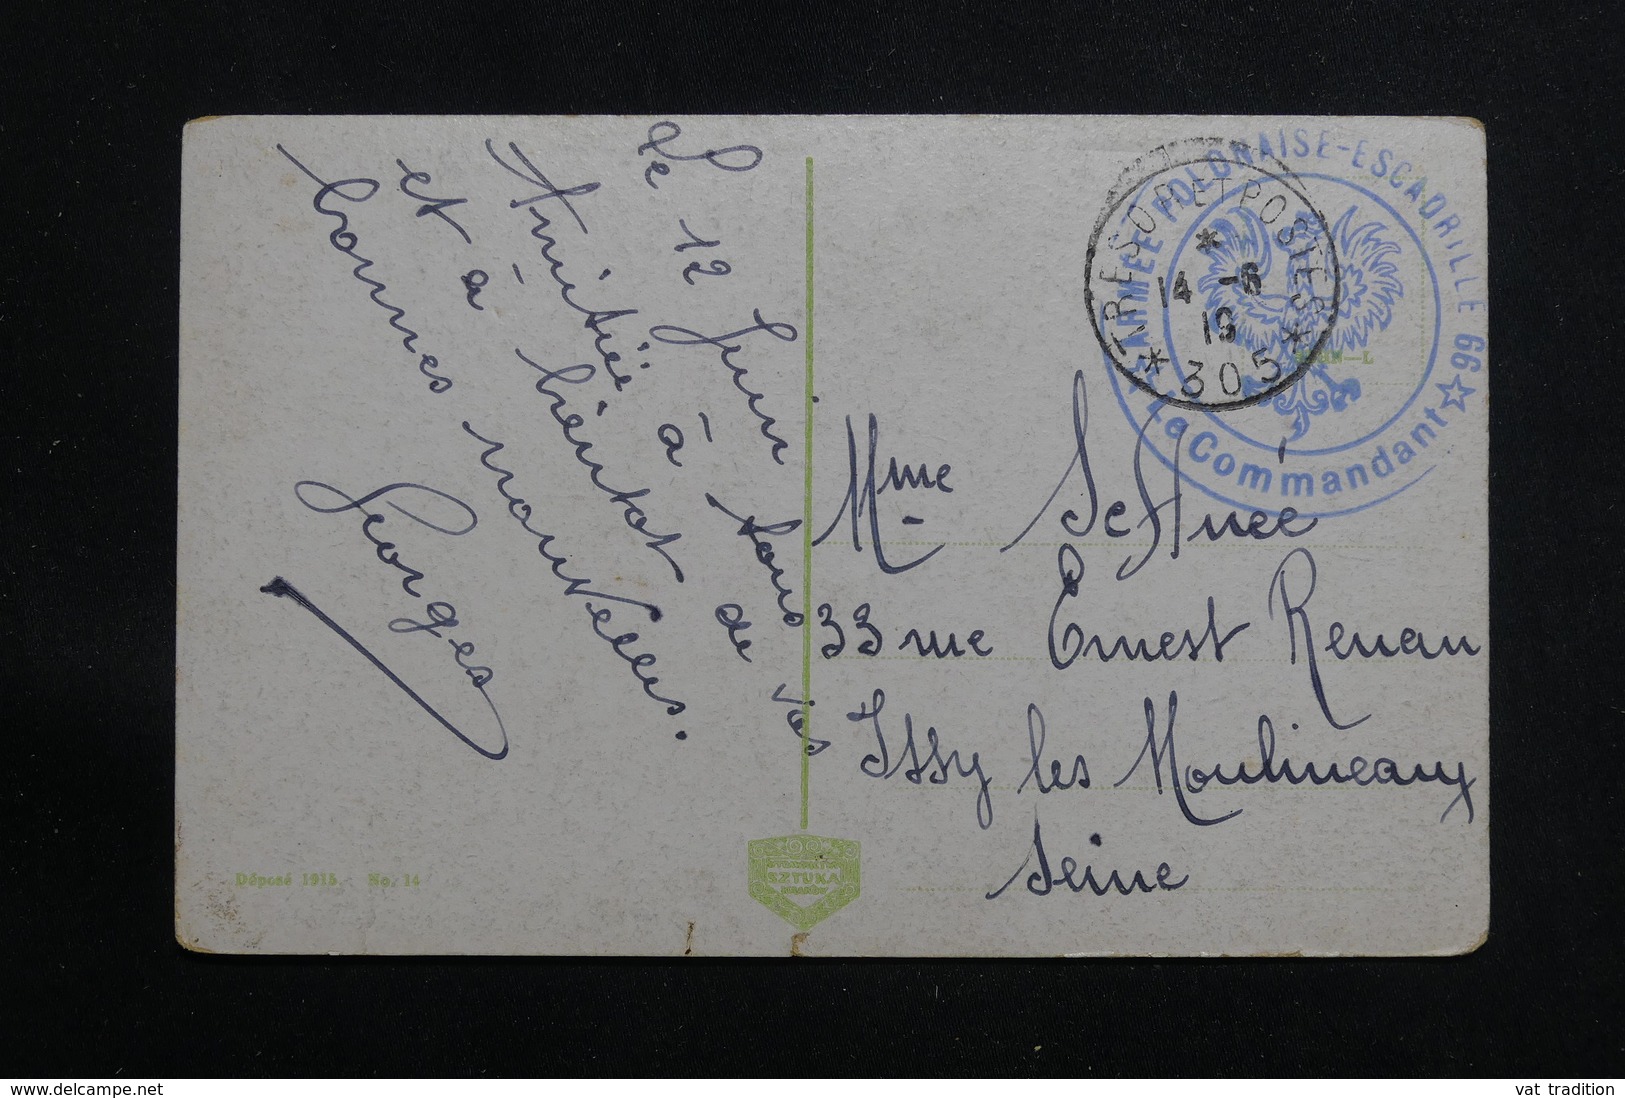 Le 12 Juin
Amitié à tous
et à bientôt de vos
bonnes nouvelles.
Georges
Mme
33 rue Ernest Renan
Issy les Moulineaux
Seine
TRESOR ET POSTES
14 -6
19
* 305 *
ARMÉE POLONAISE-ESCADRILLE 66
Le Commandant
Déposé 1918. No. 14
SZTUKA
www.delcampe.net
vat tradition